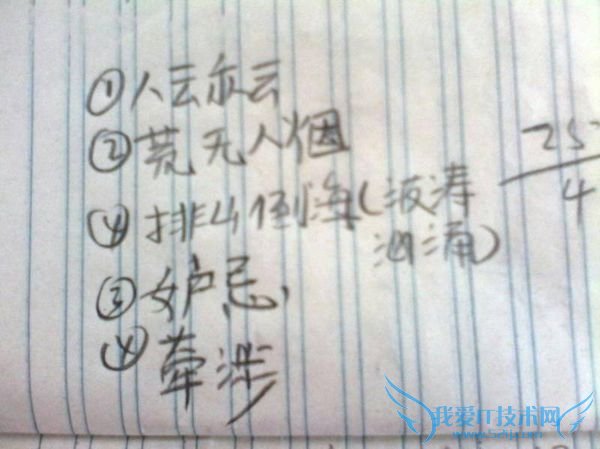 ①人云亦云
②荒无人烟
④排山倒海(波涛
汹涌)
③妒忌
④牵涉
25
4
我爱IT技术网
www.52ij.com